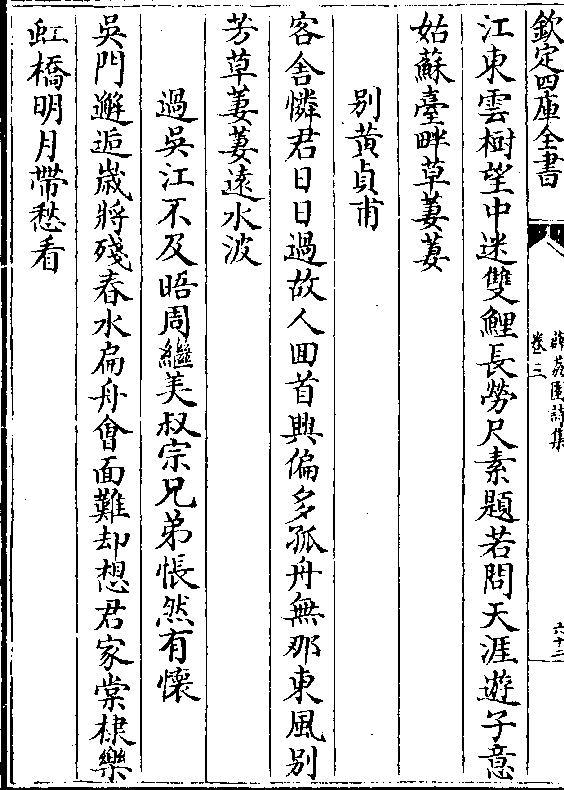 欽定四庫全書
薜荔園詩集
卷三
六十三
江東雲樹望中迷雙鯉長勞尺素題若問天涯遊子意
姑蘇臺畔草萋萋
别黄貞甫
客舎憐君日日過故人囬首興偏多孤舟無那東風别
芳草萋萋遠水波
過吳江不及晤周繼美叔宗兄弟悵然有懷
吳門邂逅嵗將殘春水扁舟㑹面難却想君家棠棣樂
虹橋明月帶愁看